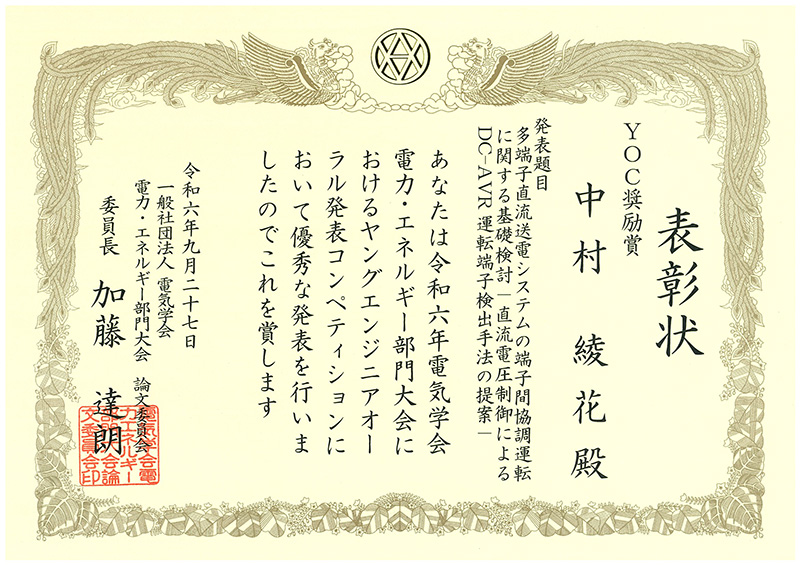 表彰状
YOC奨励賞
中村 綾花 殿
発表題目
多端子直流送電システムの端子間協調運転
に関する基礎検討－直流電圧制御による
DC－AVR運転端子検出手法の提案－
あなたは令和六年電気学会
電力・エネルギー部門大会に
おけるヤングエンジニアオー
ラル発表コンペティションに
おいて優秀な発表を行いま
したのでこれを賞します
令和六年九月二十七日
一般社団法人 電気学会
電力・エネルギー部門大会 論文委員会
委員長 加藤 達朗
電気学会電
力エネルギー
部門大会論
文委員会印